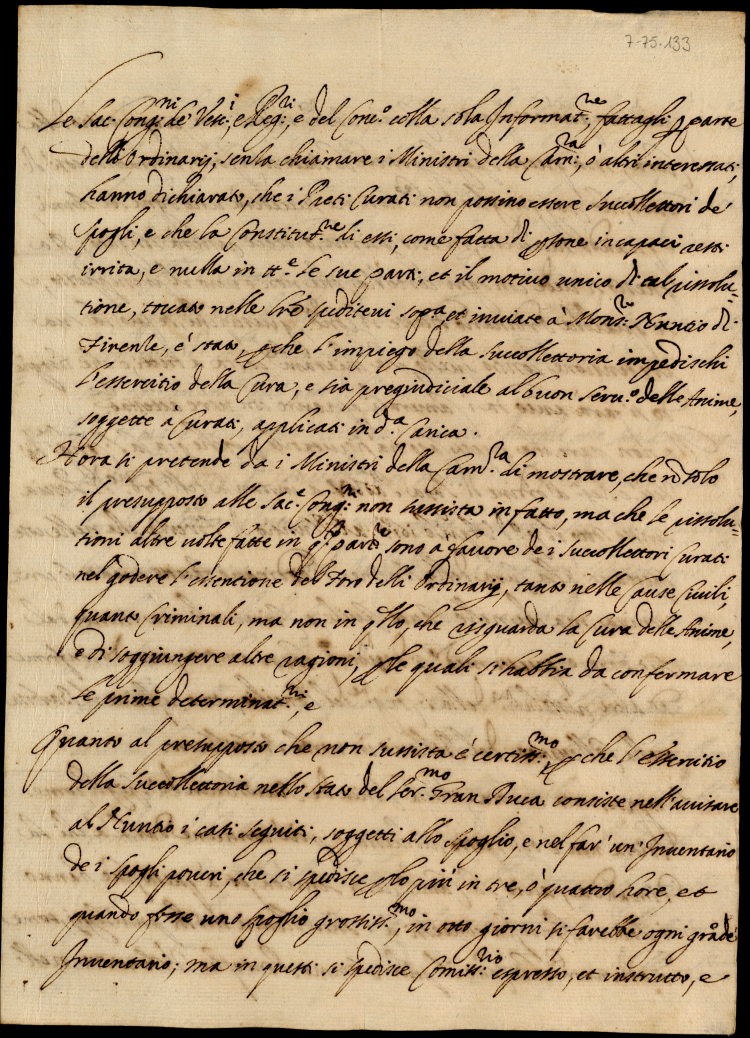 7-75-133
Le Sac. Cong.ni de Vesc.i, e Reg.ri, e del Conc.o colla sola Informat.ne fattagli p parte
delli Ordinarij, senza chiamare i Ministri della Cam.ra, ò altri interessati,
hanno dichiarato, che i Preti Curati non possino essere Succollettori de
spogli, e che la Constitut.ne di essi, come fatta di psone incapaci resti
irrita, e nulla in tt.e le sue parti, et il motivo unico di tal risolu-
tione, toccato nelle lre speditevi sop.a et inviate à Mons.re Nuntio di
Firenze, é stato pche l'impiego della succollettoria impedischi
l'essercitio della Cura, e sia pregiudiciale al buon serv.o delle Anime,
soggette à Curati, applicati in d.a Carica.
Hora si pretende da i Ministri della Cam.ra di mostrare, che nō solo
il presupposto alle Sac.e Cong.ni non sussista in fatto, ma che le risolu-
tioni altre volte fatte in q.ta parte sono à favore de i succollettori Curati
nel godere l'essentione del Foro delli Ordinarij, tanto nelle Cause Civili,
quanto Criminali, ma non in qllo, che risguarda la Cura delle Anime,
e di soggiungere altre ragioni, ple quali si habbia da confermare
le prime determinat.ni, e
Quanto al presupposto che non sussista é certiss.mo pche l'essercitio
della succollettoria nello stato del Ser.mo Gran Duca consiste nell'avvisare
al Nuntio i casi seguiti, soggetti allo spoglio, e nel far' un' Inventario
de i spogli poveri, che si spedisce plo più in tre, ò quattro hore, et
quando fosse uno spoglio grossiss.mo, in otto giorni si farebbe ogni gråde
Inventario; ma in questi si spedisce Comiss.rio espresso, et instrutto, e